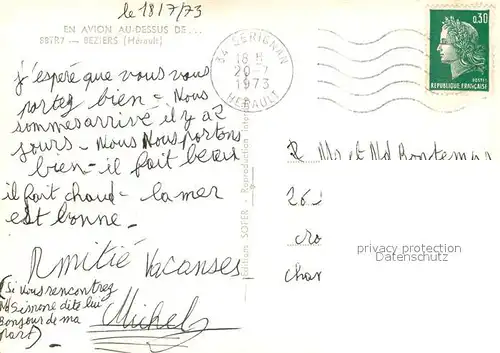 le 18/7/73
EN AVION AU-DESSUS DE...
88TR7 — BEZIERS (Hérault)
34 SERIGNAN
18 H
20-7
1973
HERAULT
0,30
POSTES
REPUBLIQUE FRANÇAISE
j'espère que vous vous
portez bien - Nous
sommes arrivé il y a 2
jours - Nous Nous portons
bien - il fait beau
il fait chaud - la mer
est bonne -
Amitié Vacanses
(Si vous rencontrez
Md Simone dite lui
Bonjour de ma
part)
Michel
Editions SOFER - Reproduction
Mr et Md Bontemps
26
cro
char
privacy protection
Datenschutz